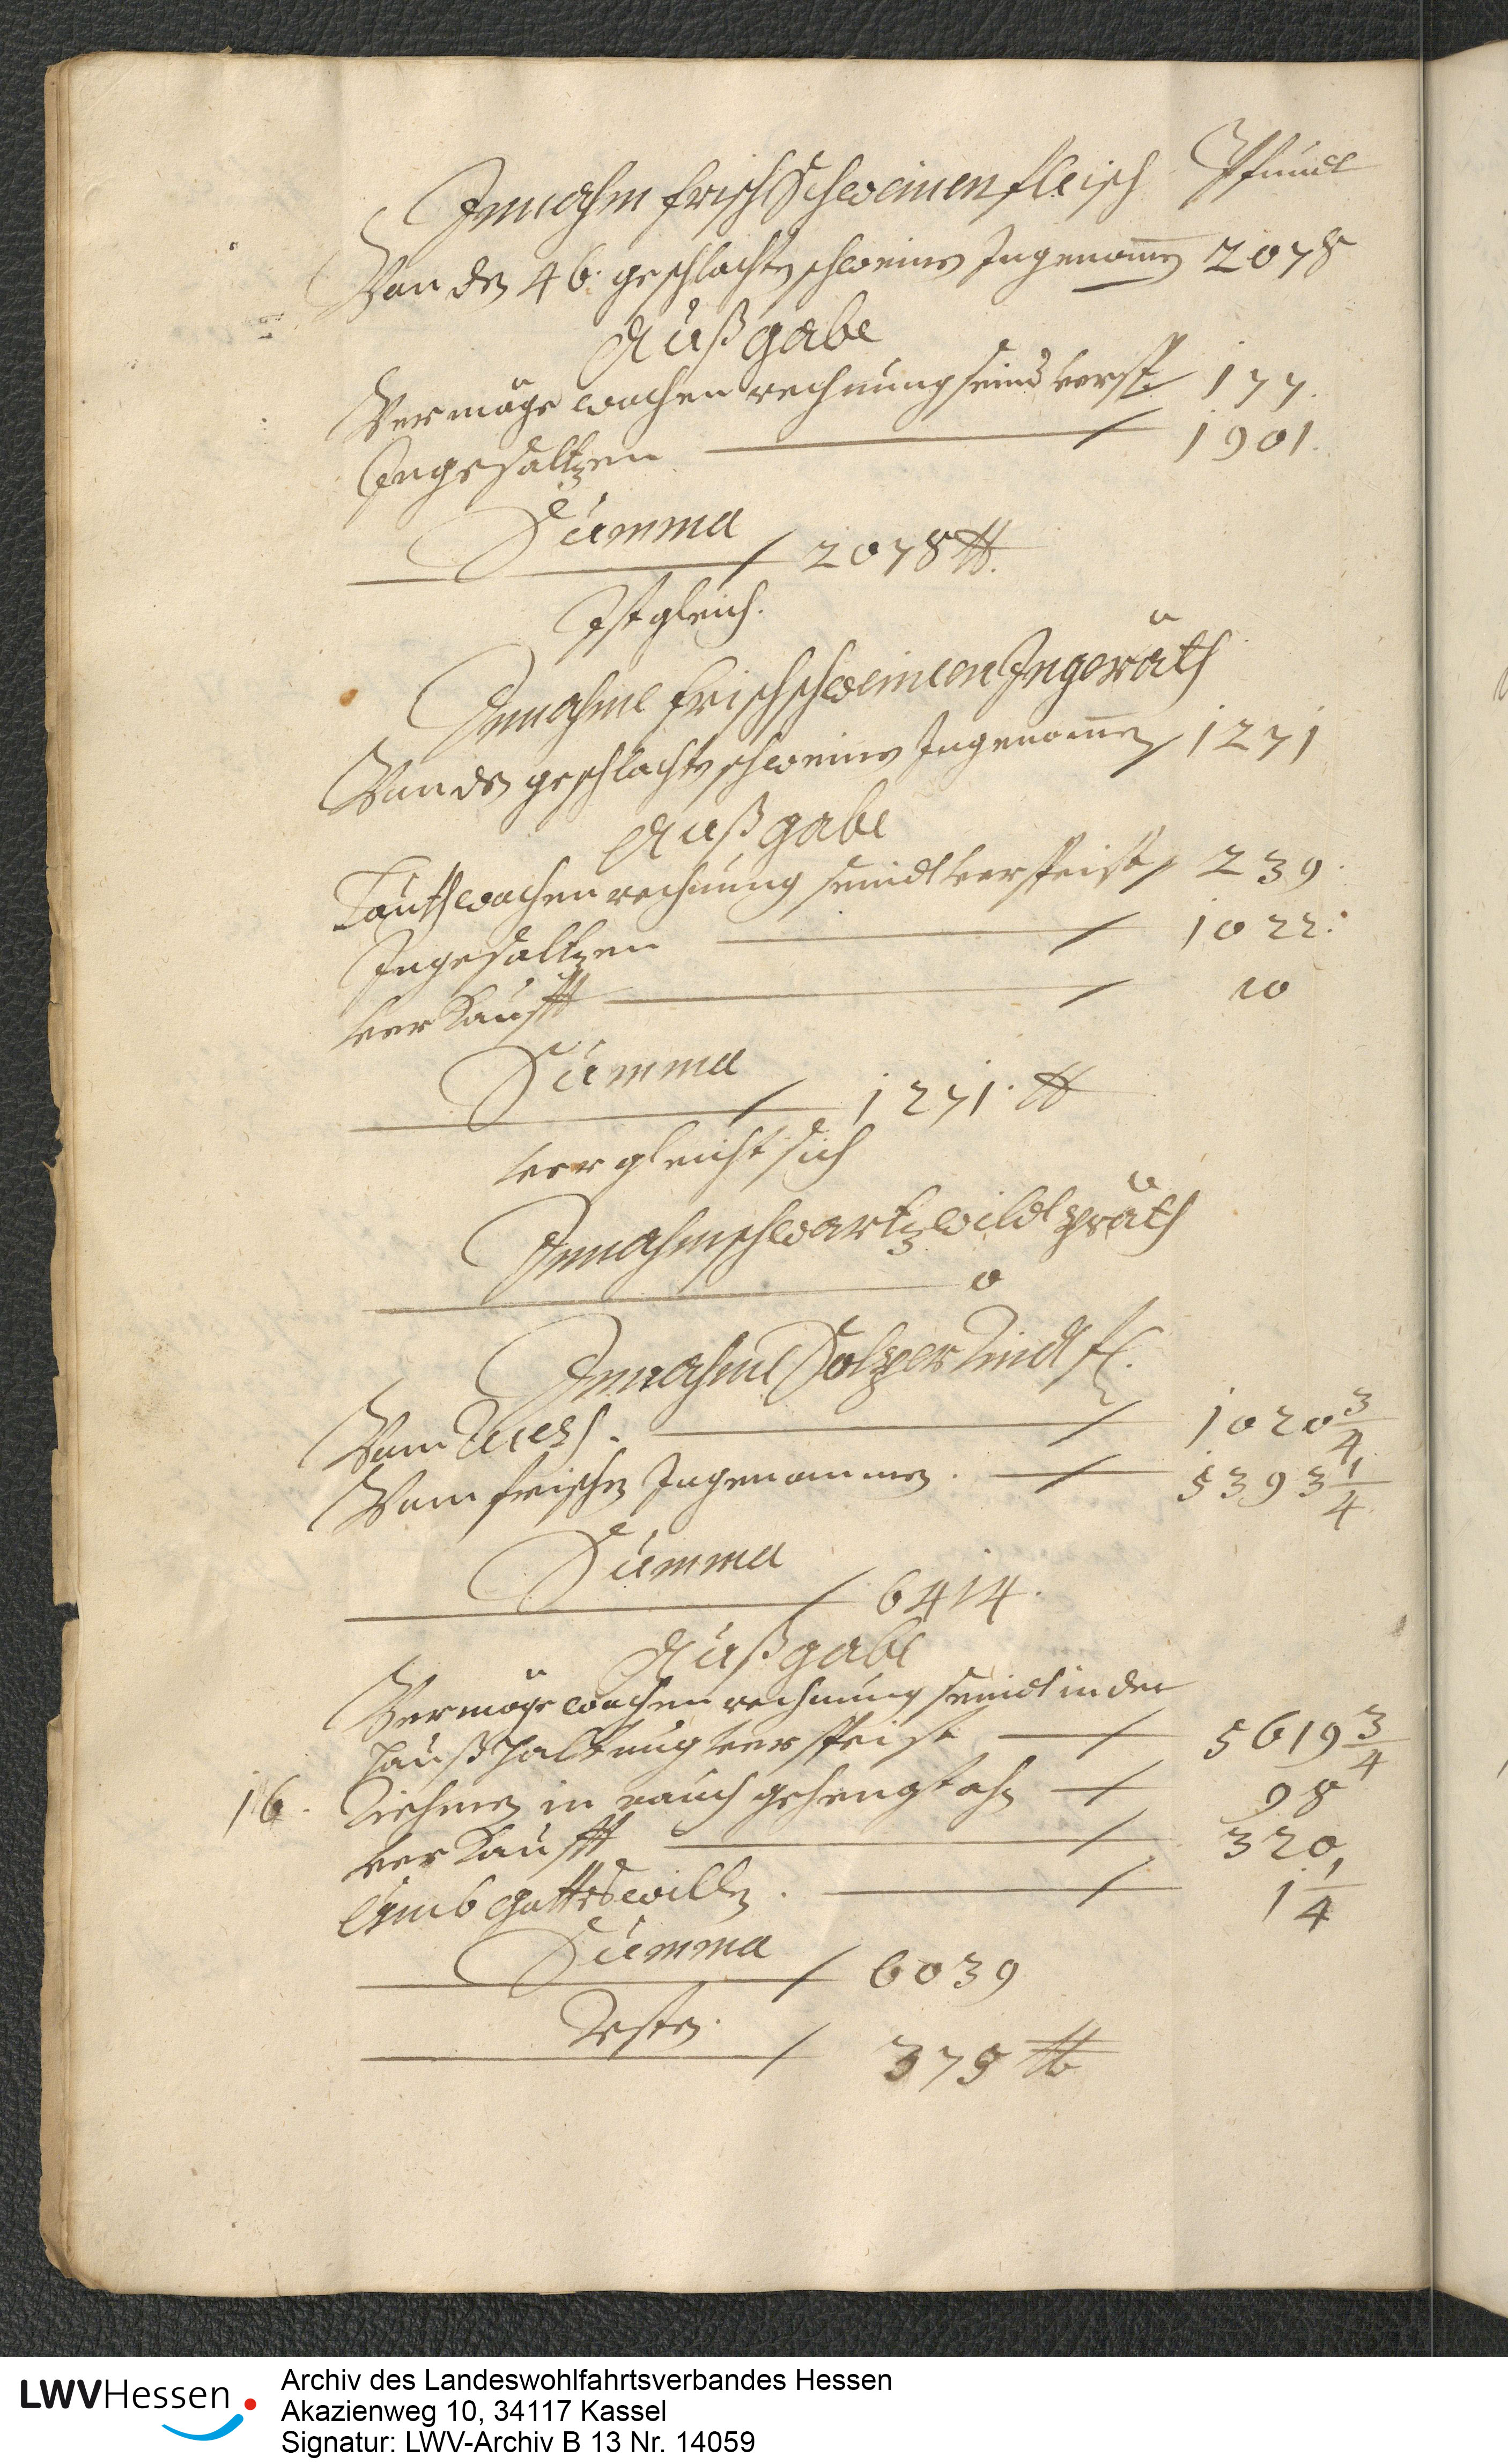 Innahm frisch Schweinenfleisch Pfundt
Von den 46. geschlachten schweinen Ingenommen 2078
Außgabe
Vermöge wochenrechnung seind versp. 177.
Ingesaltzen 1901.
Summa
2078 ℔.
Ist gleich.
Innahme frisch schweinen Ingeräth
Von den geschlachten schweinen Ingenommen 1271
Außgabe
Lauth wochenrechnung seindt verspeist 239.
Ingesaltzen 1022.
verkaufft 10
Summa
1271. ℔
vergleicht sich
Innahm schwartz wildtpräth
0
Innahme Soltper Rindtfl.
Vom Recess. 1020 3/4
Vom frischen Ingenommen. 5393 1/4
Summa
6414.
Außgabe
Vermöge wochenrechnung seindt in der
haußhaltung verspeist 5619 3/4
16. Riehmen in rauch gehengt ahn 98
verkaufft 320
Umb Gottes willen. 1 1/4
Summa
6039
Resten.
375 ℔
LWVHessen
Archiv des Landeswohlfahrtsverbandes Hessen
Akazienweg 10, 34117 Kassel
Signatur: LWV-Archiv B 13 Nr. 14059